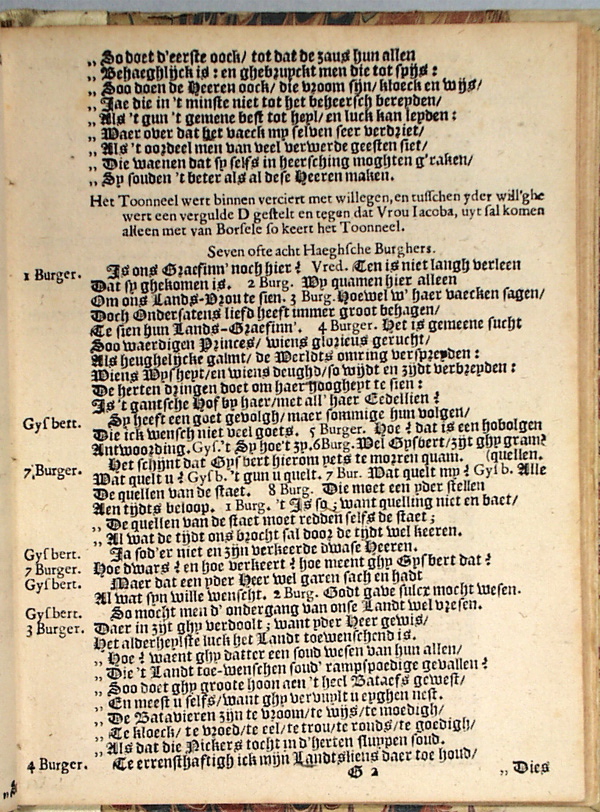 „ So doet d'eerste oock/ tot dat de zaus hun allen
„ Behaeghlijck is : en ghebruyckt men die tot spijs :
„ Soo doen de Heeren oock/ die vroom sijn/ kloeck en wijs/
„ Jae die in 't minste niet tot het beheersch bereyden/
„ Als 't gun 't gemene best tot heyl/ en luck kan leyden :
„ Waer over dat het vaeck my selven seer verdriet/
„ Als 't oordeel men van veel verwerde geesten siet/
„ Die waenen dat sy selfs in heersching moghten g'raken/
„ Sy souden 't beter als al dese Heeren maken.
Het Toonneel wert binnen verciert met willegen, en tusschen yder will'ghe
wert een vergulde D gestelt en tegen dat Vrou Iacoba, uyt sal komen
alleen met van Borsele so keert het Toonneel.
Seven ofte acht Haeghsche Burghers.
1 Burger. Is ons Graefinn' noch hier ? Vred. Ten is niet langh verleen
Dat sy ghekomen is. 2 Burg. Wy quamen hier alleen
Om ons Lands-Vrou te sien. 3 Burg. Hoewel w' haer vaecken sagen/
Doch Ondersatens liefd heeft immer groot behagen/
Te sien hun Lands-Graefinn'. 4 Burger. Het is gemeene sucht
Soo waerdigen Princes/ wiens glorieus gerucht/
Als heughelijcke galmt/ de Werldts omring verspreyden :
Wiens Wysheyt/ en wiens deughd/ so wijdt en zijdt verbreyden :
De herten dringen doet om haer hoogheyt te sien :
Is 't gantsche Hof by haer/ met all' haer Eedellien ?
Gysbert. Sy heeft een goet gevolgh/ maer sommige hun volgen/
Die ick wensch niet veel goets. 5 Burger. Hoe ? dat is een hobolgen
Antwoording. Gys. 't Sy hoe't zy. 6 Burg. Wel Gysbert/ zijt ghy gram?
Het schijnt dat Gysbert hierom yets te morren quam. (quellen.
7. Burger. Wat quelt u ? Gysb. 't gun u quelt. 7 Bur. Wat quelt my ? Gysb. Alle
De quellen van de staet. 8 Burg. Die moet een yder stellen
Aen tijdts beloop. 1 Burg. 't Is so ; want quelling niet en baet/
„ De quellen van de staet moet redden selfs de staet ;
„ Al wat de tijdt ons brocht sal door de tijdt wel keeren.
Gysbert. Ja sod'er niet en zijn verkeerde dwase Heeren.
7 Burger. Hoe dwars ? en hoe verkeert ? hoe meent ghy Gysbert dat ?
Gysbert. Maer dat een yder Heer wel garen sach en hadt
Al wat syn wille wenscht. 2 Burg. Godt gave sulcx mocht wesen.
Gysbert. So mocht men d' ondergang van onse Landt wel vresen.
3 Burger. Daer in zijt ghy verdoolt ; want yder Heer gewis/
Het alderheylste luck het Landt toewenschend is.
„ Hoe ? waent ghy datter een soud wesen van hun allen/
„ Die 't Landt toe-wenschen soud' rampspoedige gevallen ?
„ Soo doet ghy groote hoon aen 't heel Bataefs gewest/
„ En meest u selfs/ want ghy vervuylt u eyghen nest.
„ De Batavieren zijn te vroom/ te wijs/ te moedigh/
„ Te kloeck/ te vroed/ te eel/ te trou/ te ronds/ te goedigh/
„ Als dat die Nickers tocht in d'herten sluypen soud.
4 Burger. Te errensthaftigh ick mijn Landtsliens daer toe houd/
G 2 „ Dies